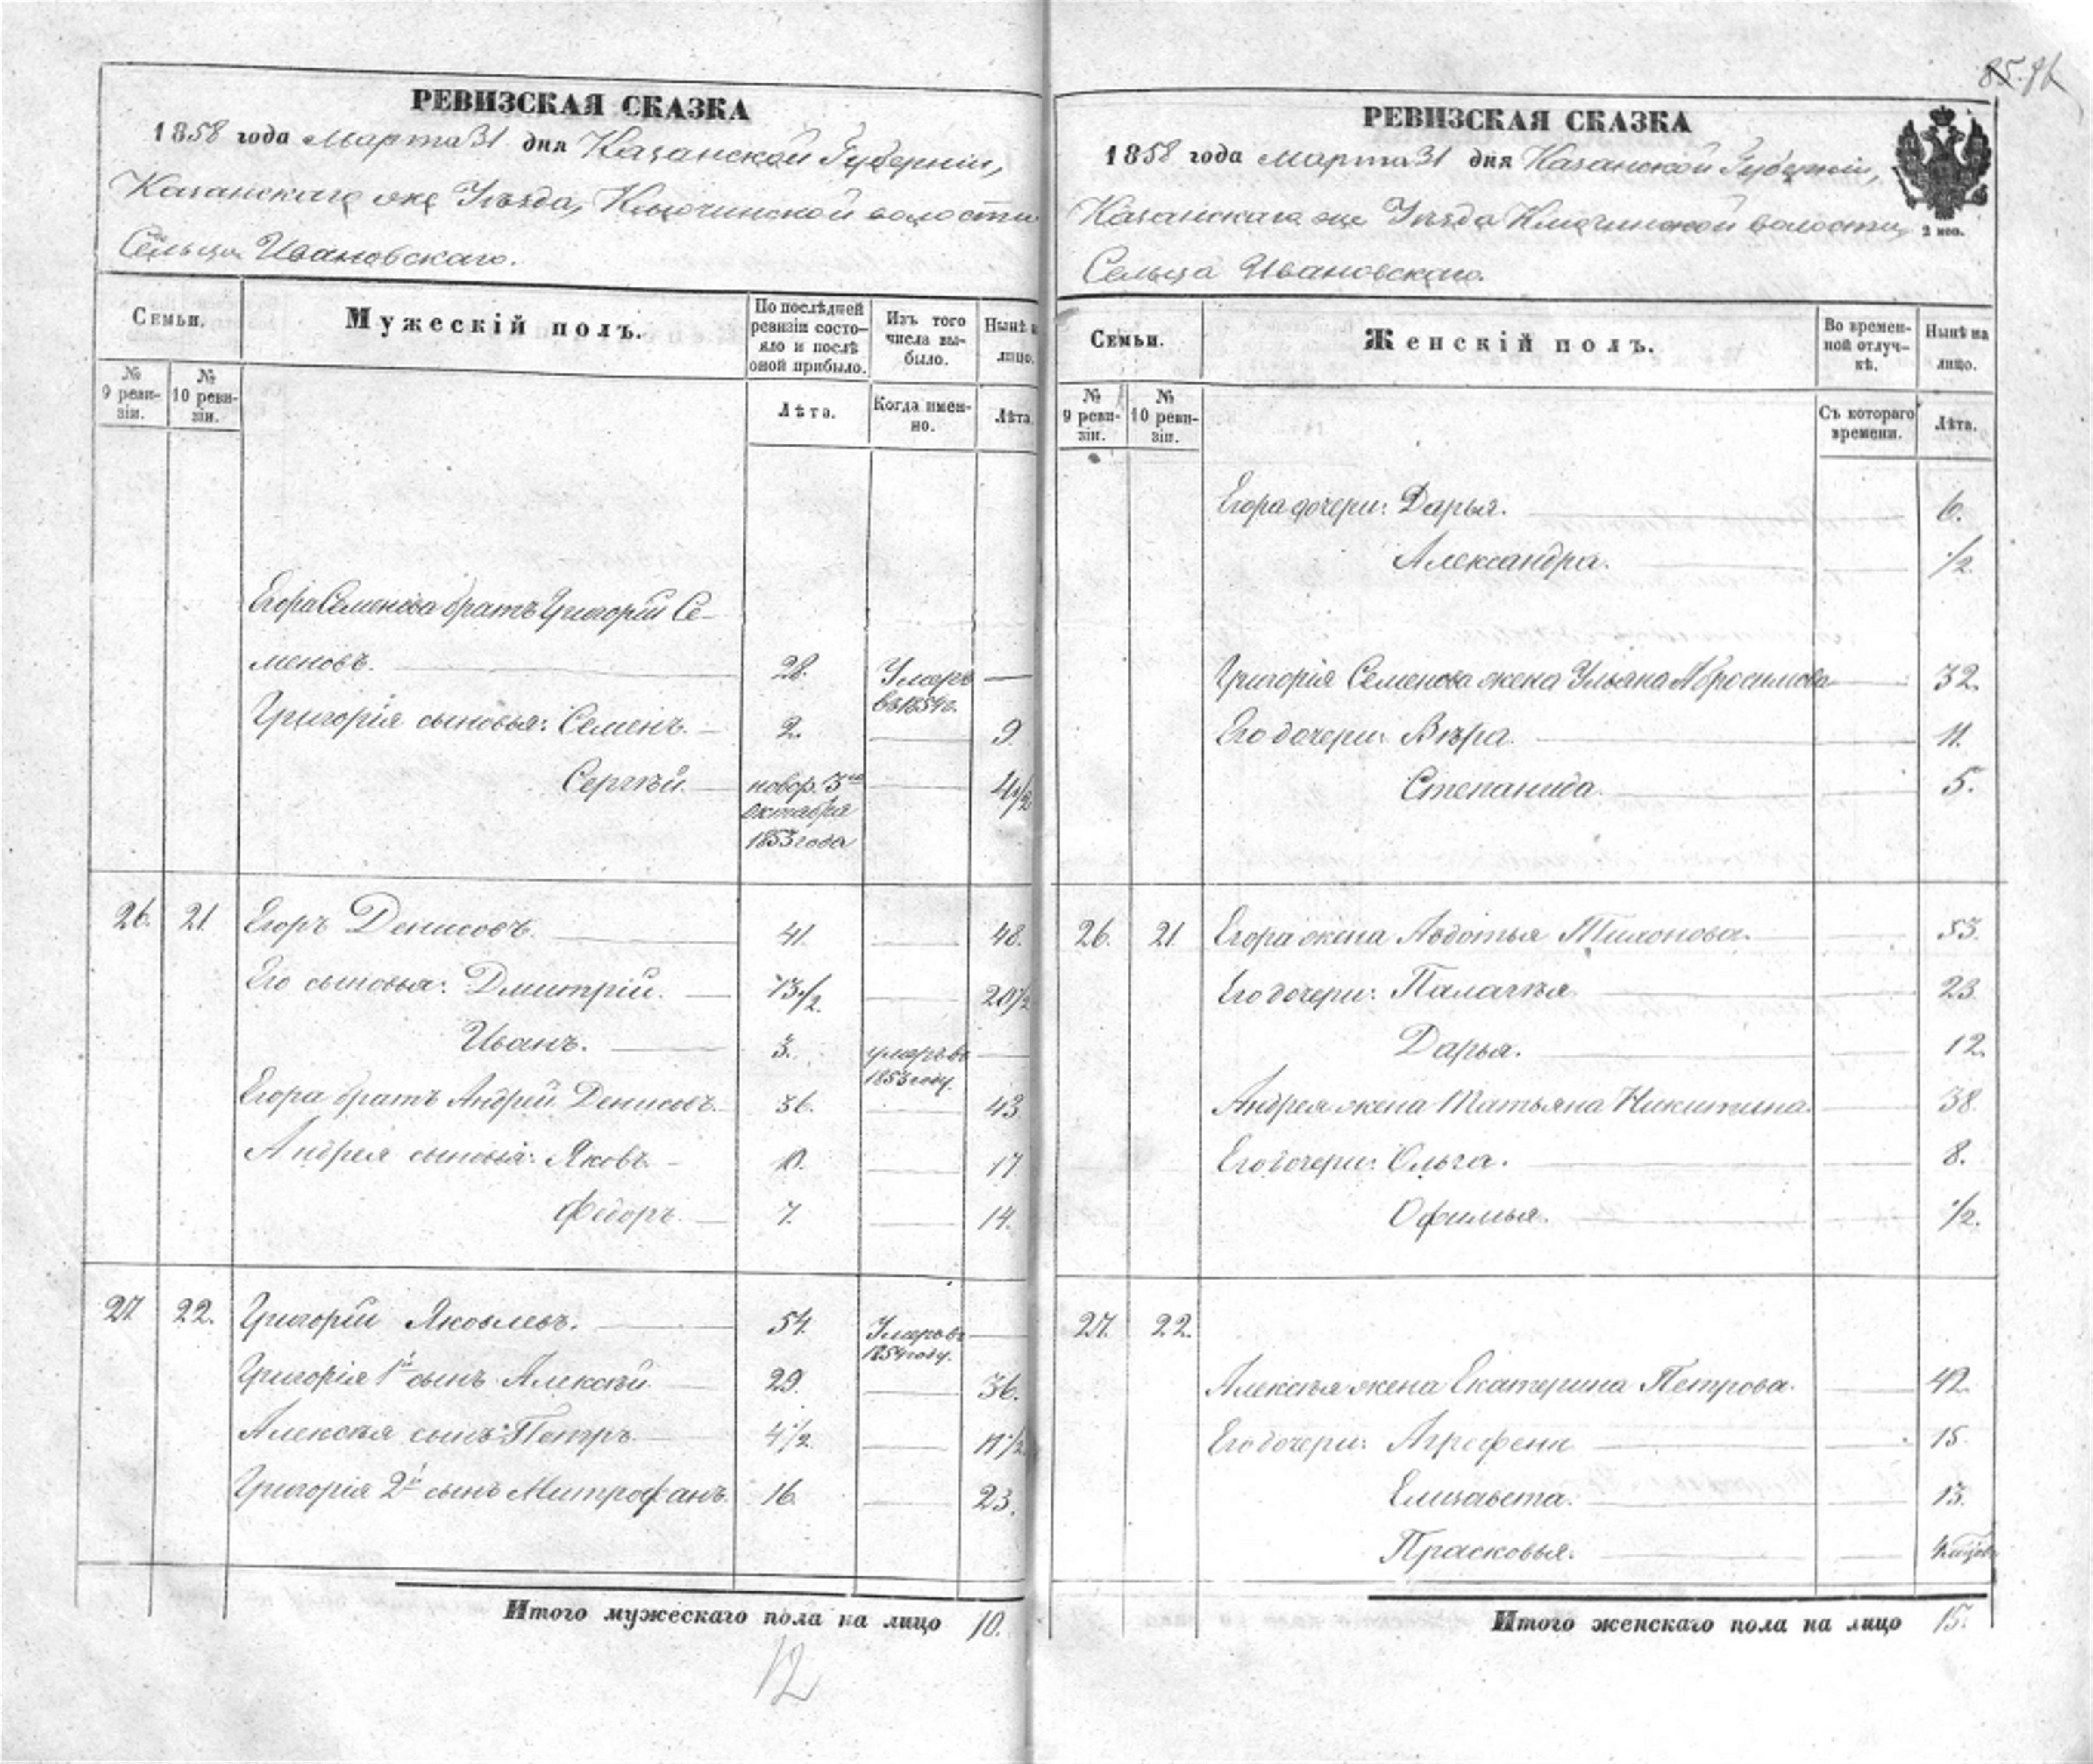 85. 96
РЕВИЗСКАЯ СКАЗКА
1858 года Марта 31 дня Казанской Губерніи,
Казанскаго же Уѣзда, Ключинской волости
Сельца Ивановскаго.
Семьи.
Мужескій полъ.
По послѣдней ревизіи состояло и послѣ оной прибыло.
Изъ того числа выбыло.
Нынѣ на лицо.
№ 9 ревизіи.
№ 10 ревизіи.
Лѣта.
Когда именно.
Лѣта.
Егора Семенова братъ Григорій Се-
меновъ. 28. Умеръ —
въ 1854 г.
Григорія сыновья: Семенъ. — 2. — 9.
Сергѣй. — новор. 3го — 4 1/2
октября
1853 года
26. 21 Егоръ Денисовъ. — 41. — 48.
Его сыновья: Дмитрій. — 13 1/2. — 20 1/2
Иванъ. — 3. умеръ въ —
1853 году.
Егора братъ Андрей Денисовъ. 36. — 43
Андрея сыновья: Яковъ. — 10. — 17
Федоръ. — 7. — 14.
27. 22. Григорій Яковлевъ. — 54. Умеръ въ —
1854 году.
Григорія 1й сынъ Алексѣй. — 29. — 36.
Алексѣя сынъ: Петръ. — 4 1/2. — 11 1/2
Григорія 2й сынъ Митрофанъ. 16. — 23.
Итого мужескаго пола на лицо 10.
12
РЕВИЗСКАЯ СКАЗКА
1858 года Марта 31 дня Казанской Губерніи,
Казанскаго же Уѣзда Ключинской волости,
Сельца Ивановскаго.
2 коп.
Семьи.
Женскій полъ.
Во временной отлучкѣ.
Нынѣ на лицо.
№ 9 ревизіи.
№ 10 ревизіи.
Съ котораго времени.
Лѣта.
Егора дочери: Дарья. — 6.
Александра. — 1/2
Григорія Семенова жена Ульяна Абросимова — 32.
Его дочери: Вѣра. — 11.
Степанида. — 5.
26. 21. Егора жена Авдотья Тихонова. — 53.
Его дочери: Палагѣя. — 23
Дарья. — 12.
Андрея жена Татьяна Никитина. — 38.
Его дочери: Ольга. — 8.
Офимья. — 1/2.
27. 22.
Алексѣя жена Екатерина Петрова. — 42.
Его дочери: Аграфена — 15
Елизавета. — 13.
Прасковья. —
Итого женскаго пола на лицо 15.